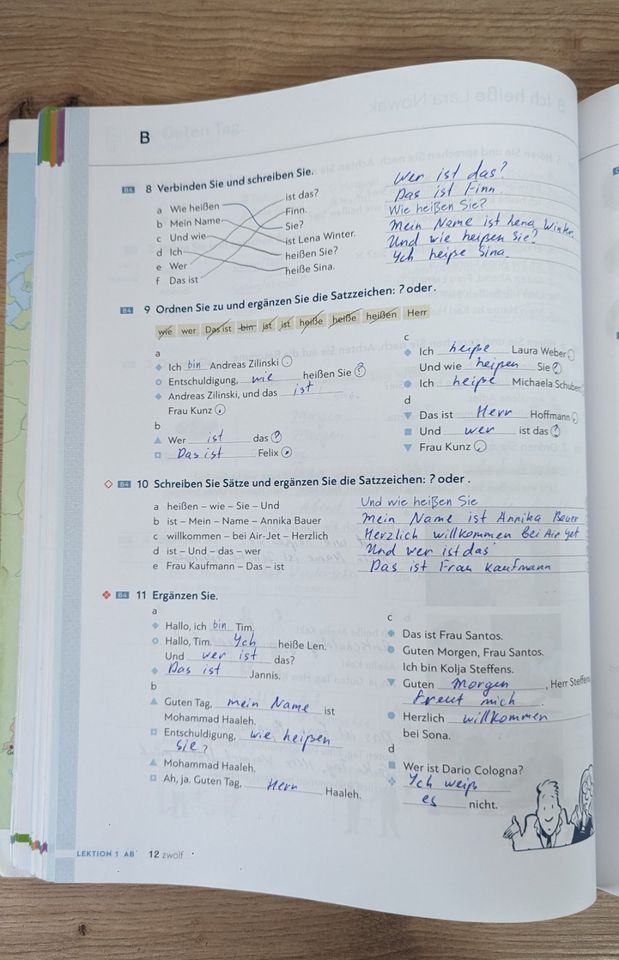 B
B4 8 Verbinden Sie und schreiben Sie.
a Wie heißen
b Mein Name
c Und wie
d Ich
e Wer
f Das ist
ist das?
Finn.
Sie?
ist Lena Winter.
heißen Sie?
heiße Sina.
Wer ist das?
Das ist Finn
Wie heißen Sie?
Mein Name ist Lena Winter.
Und wie heißen Sie?
Ych heiße Sina.
B4 9 Ordnen Sie zu und ergänzen Sie die Satzzeichen: ? oder .
wie wer Das ist bin ist ist heiße heiße heißen Herr
a
Ich bin Andreas Zilinski .
Entschuldigung, wie heißen Sie ?
Andreas Zilinski, und das ist
Frau Kunz .
b
Wer ist das ?
Das ist Felix .
c
Ich heiße Laura Weber .
Und wie heißen Sie ?
Ich heiße Michaela Schuber
d
Das ist Herr Hoffmann .
Und wer ist das ?
Frau Kunz .
B4 10 Schreiben Sie Sätze und ergänzen Sie die Satzzeichen: ? oder .
a heißen – wie – Sie – Und
b ist – Mein – Name – Annika Bauer
c willkommen – bei Air-Jet – Herzlich
d ist – Und – das – wer
e Frau Kaufmann – Das – ist
Und wie heißen Sie
Mein Name ist Annika Bauer
Herzlich willkommen bei Air Jet
Und wer ist das
Das ist Frau Kaufmann
B4 11 Ergänzen Sie.
a
Hallo, ich bin Tim.
Hallo, Tim. Ych heiße Len.
Und wer ist das?
Das ist Jannis.
b
Guten Tag, mein Name ist
Mohammad Haaleh.
Entschuldigung, wie heißen
Sie?
Mohammad Haaleh.
Ah, ja. Guten Tag, Herr Haaleh.
c
Das ist Frau Santos.
Guten Morgen, Frau Santos.
Ich bin Kolja Steffens.
Guten Morgen, Herr Steffens
Freut mich.
Herzlich willkommen
bei Sona.
d
Wer ist Dario Cologna?
Ych weiß
es nicht.
LEKTION 1 AB 12 zwölf